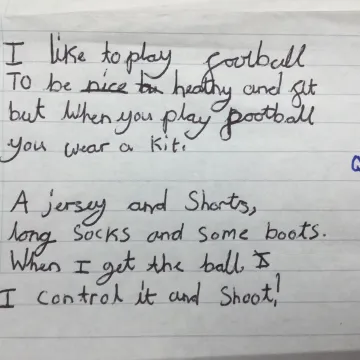 I like to play football
TO be nice to heathy and fit
but when you play football
you wear a kit.
A jersey and Shorts,
long Socks and some boots.
When I get the ball I
I control it and Shoot!